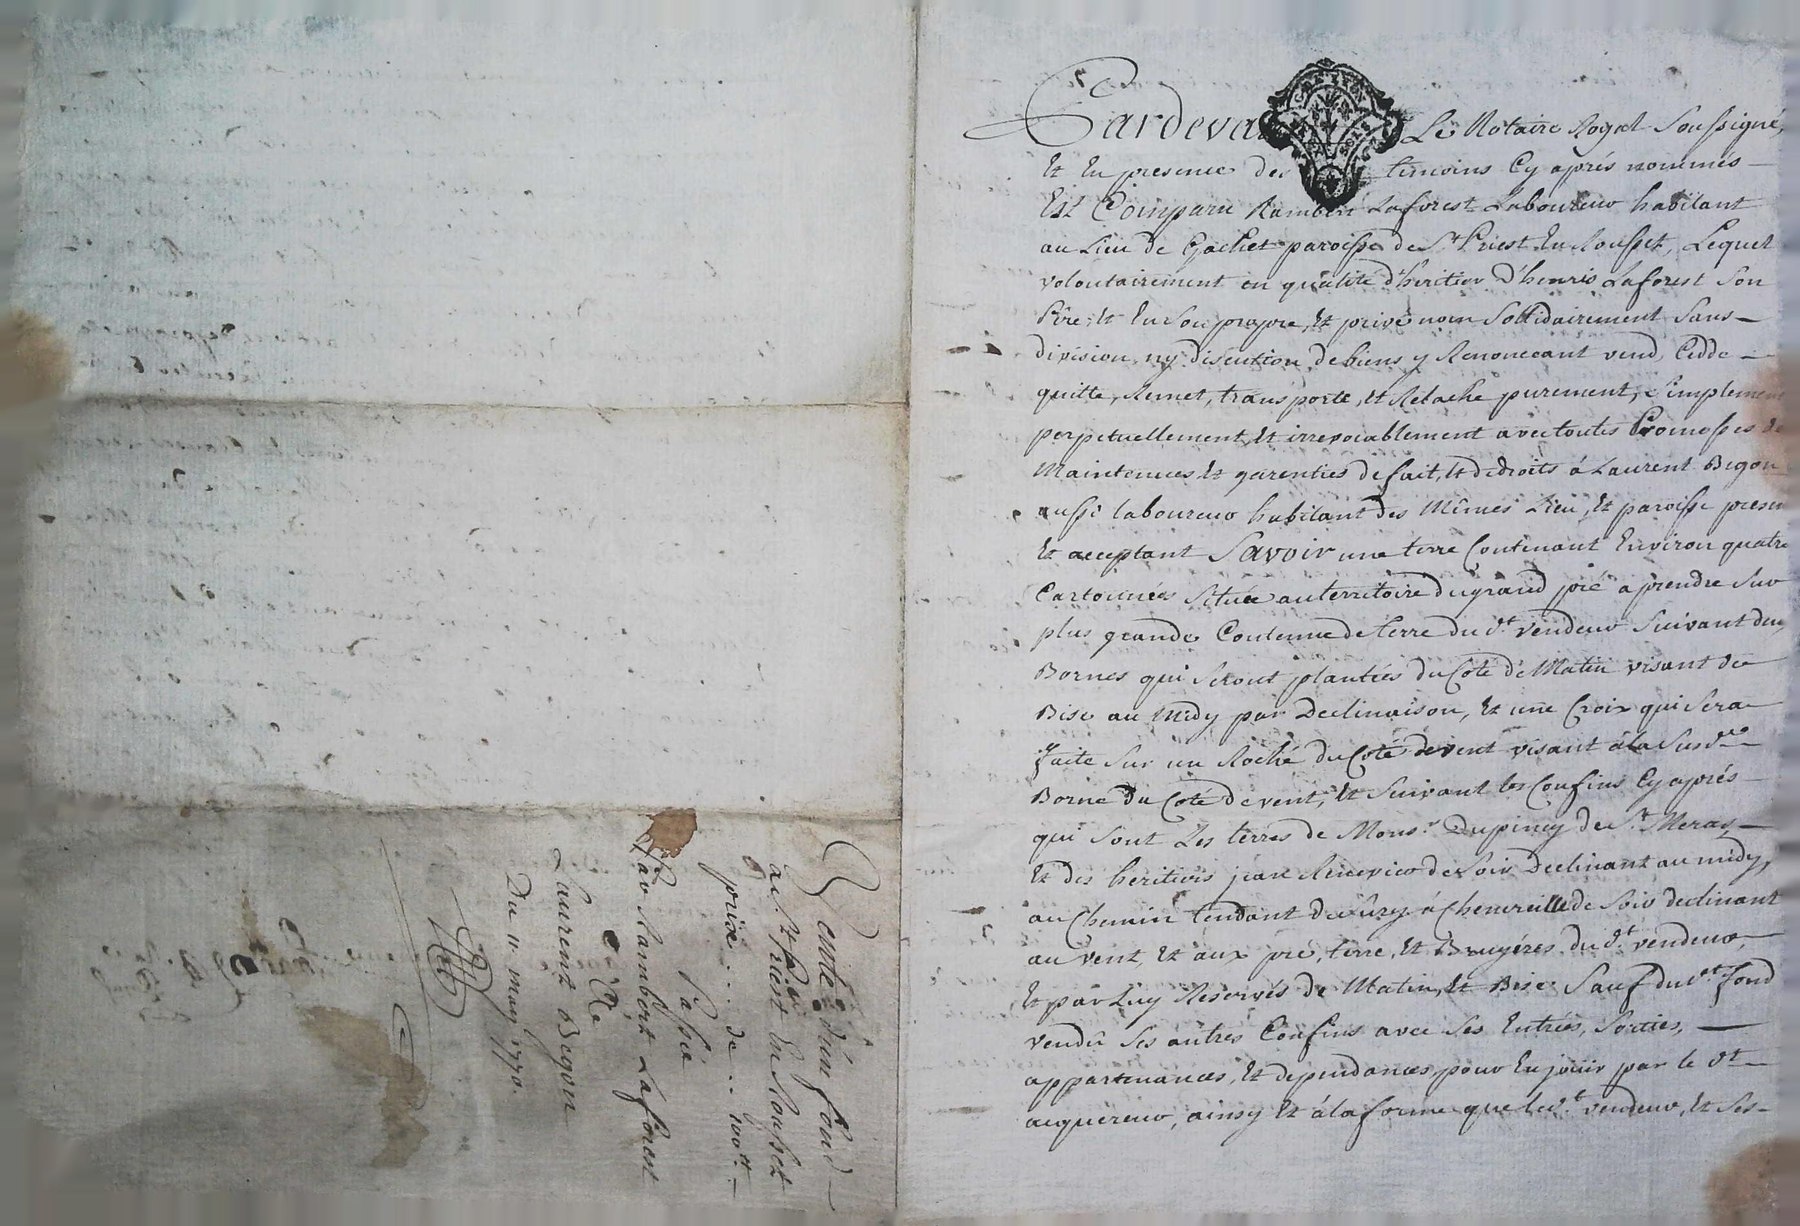 Pardevant Le Notaire Royal Soussigné,
Et En presence des temoins Cy aprés nommés
Est Comparu Rambert Laforest Laboureur habitant
au Lieu de Gachet paroisse de St Priest En Rousset, Lequel
volontairement en qualité d'heritier d'henris Laforest Son
Pére, Et En Son propre, Et privé nom Sollidairement Sans
division ny discution de biens y Renoncant vend, Cedde
quitte, Remet, transporte, Et Relache purement, Simplement
perpetuellement, Et irrevocablement avec toutes Promesses de
Maintenues Et garenties de fait, Et de droits á Laurent Begon
aussi laboureur habitant des Mêmes Lieu, Et paroisse present
Et acceptant Savoir une terre Contenant Environ quatre
Cartonnées Située au territoire du grand pré a prendre Sur
plus grande Contenue de terre du dt vendeur Suivant deux
Bornes qui Seront plantées du Coté de Matin visant de
Bise au Midy par Declinaison, Et une Croix qui Sera
faite Sur un Roché du Coté de vent visant á la Susd
Borne du Coté de vent, Et Suivant les Confins Cy aprés
qui Sont Les terres de Monsr Dupiney de St
Et des heritiers jean de Soir Declinant au midy,
au Chemin tendant á Chenereille de Soir declinant
au vent, Et aux pré, terre, Et Bruyéres du dt vendeur,
Et par Luy Reservés de Matin, Et Bise Sauf du dt fond
vendu Ses autres Confins avec Ses Entrées, Sorties,
appartenances, Et dependances pour En jouir par le dt
acquereur, ainsy Et á la forme que Le dt vendeur, Et Ses
Vente d'un fond
á St Priest En Rousset
prix de 400
Passée
Par Rambert Laforest
á
Laurent Begon
Du 11 may 1770